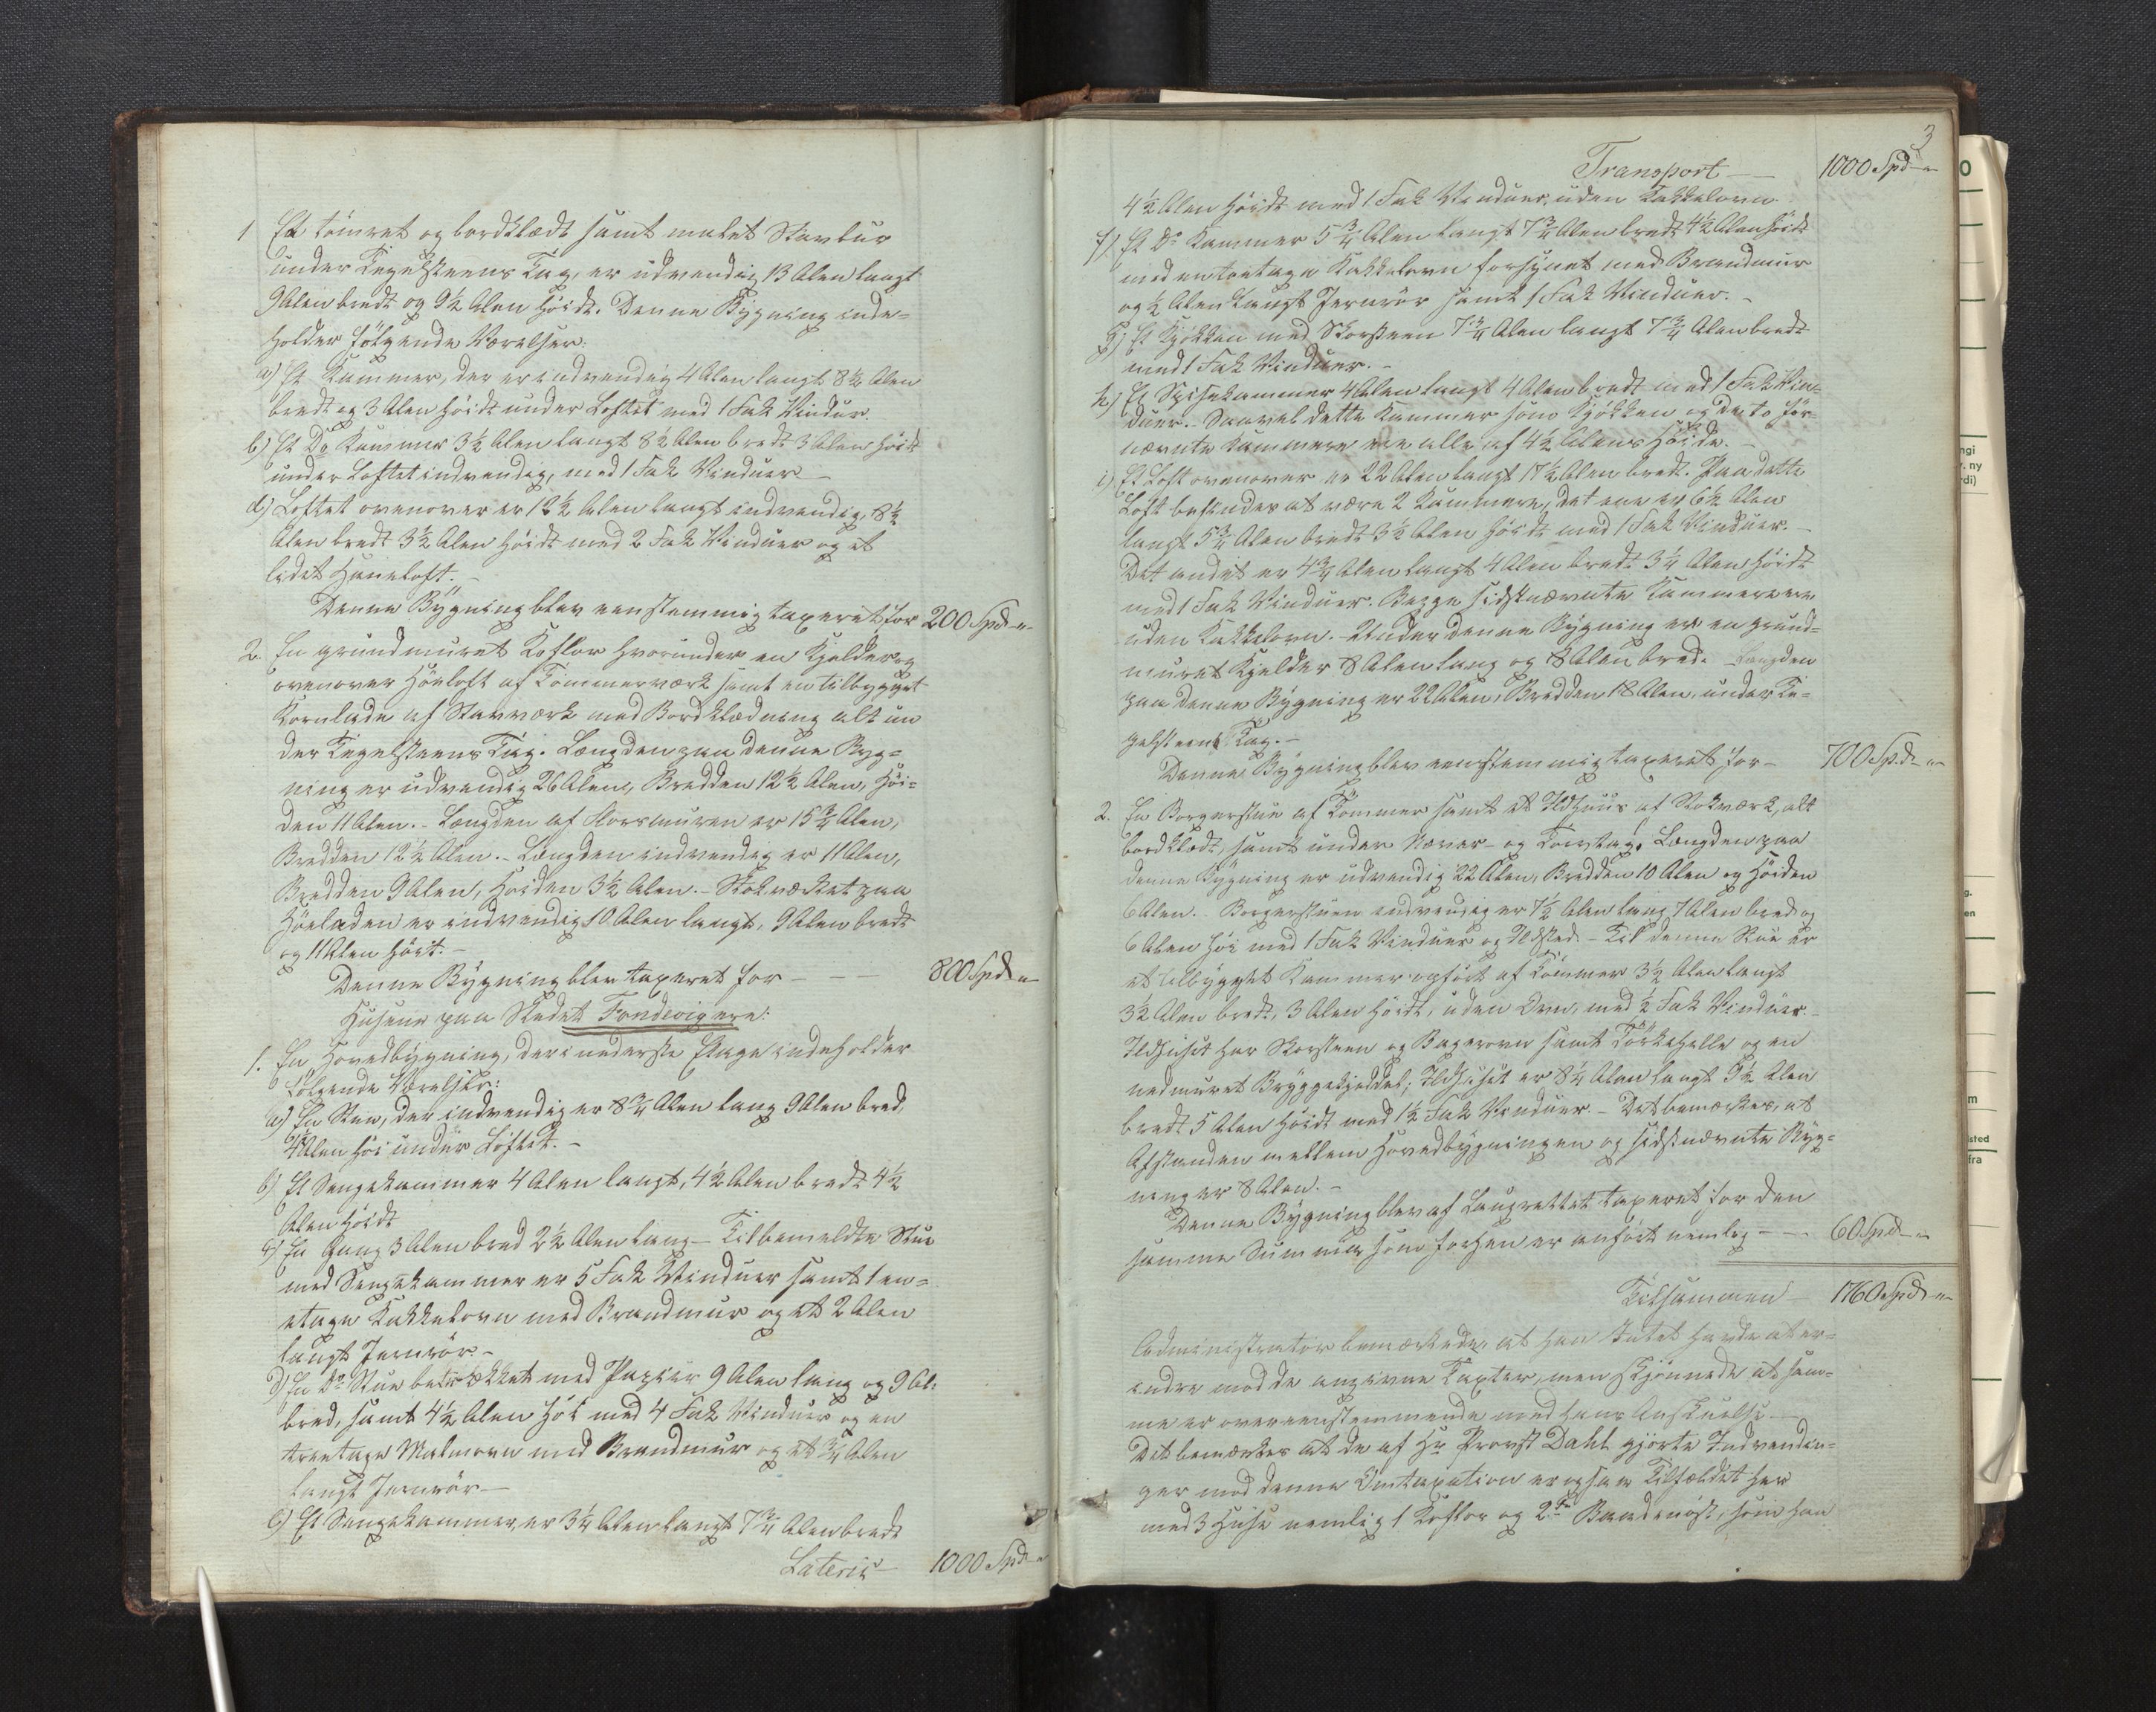 1 Et tømret og bordklædt samt malet Stavbur
under Tegelsteens Tag, er udvendig 13 Alen langt
9 Alen bredt og 9½ Alen høidt. Denne Bygning inde=
holder følgende Værelser:
a) Et Kammer, der er indvendig 4 Alen langt 8½ Alen
bredt og 3 Alen høidt under Loftet med 1 Fak Vinduer.
b) Et Do Kammer 3½ Alen langt 8½ Alen bredt 3 Alen høidt
under Loftet indvendig, med 1 Fak Vinduer -
d) Loftet ovenover er 12½ Alen langt indvendig, 8½
Alen bredt 3½ Alen høidt med 2 Fak Vinduer og et
lidet Haneloft. -
Denne Bygning blev eenstemmig taxeret for 200 Spd -"-
2. En grundmuret Koflor hvorunder en Kjelder og
ovenover Høeloft af Tømmerværk samt en tilbygget
Kornlade af Stavværk med Bordklædning alt un
der Tegelsteens Tag. Længden paa denne Byg=
ning er udvendig 26 Alen, Bredden 12½ Alen, Høi=
den 11 Alen. - Længden af Florsmuren er 15¾ Alen,
Bredden 12½ Alen. - Længden indvendig er 11 Alen,
Bredden 9 Alen, Høiden 3½ Alen. - Stokværket paa
Høeladen er indvendig 10 Alen langt, 9 Alen bredt
og 11 Alen høit. -
Denne Bygning blev taxeret for - - 800 Spd -"-
Husene paa Stedet Fondevig ere:
1. En Hovedbygning, der i nederste Etage indeholder
følgende Værelser:
a) En Stue, der indvendig er 8¾ Alen lang 9 Alen bred,
4½ Alen høi under Loftet. -
b) Et Sengekammer 4 Alen langt, 4½ Alen bredt 4½
Alen høidt
c) En Gang 3 Alen bred 2½ Alen lang - Til bemeldte Stue
med Sengekammer er 5 Fak Vinduer samt 1 en=
etage Kakkelovn med Brandmur og et 2 Alen
langt Jernrør. -
d) En Do Stue betrækket med Papiir 9 Alen lang og 9 Al:
bred, samt 4½ Alen høi med 4 Fak Vinduer og en
treetage Malmovn med Brandmur og et ¾ Alen
langt Jernrør -
e) Et Sengekammer, er 3¼ Alen langt 7¾ Alen bredt
Lateris - 1000 Spd -"
3
Transport - 1000 Spd -"-
4½ Alen høidt med 1 Fak Vinduer, uden Kakkelovn
f) Et Do Kammer 5¾ Alen langt 7¾ Alen bredt 4½ Alen høidt
med en toetage Kakkelovn forsynet med Brandmur
og ½ Alen langt Jernrør samt 1 Fak Vinduer. -
g) Et Kjøkken med Skorsteen 7¾ Alen langt 7¾ Alen bredt
med 1 Fak Vinduer. -
h) Et Spisekammer 4 Alen langt 4 Alen bredt med 1 Fak Vin=
duer. - Saavel dette Kammer som Kjøkken og de to før=
nævnte Kammere ere alle af 4½ Alens Høide. -
i) Et Loft ovenover er 22 Alen langt 17½ Alen bredt. Paa dette
Loft befindes at være 2 Kammere, det ene er 6½ Alen
langt 5¾ Alen bredt 3½ Alen høidt med 1 Fak Vinduer. -
Det andet er 4¾ Alen langt 4 Alen bredt 3¼ Alen høidt
med 1 Fak Vinduer. Begge sidstnævnte Kammere ere
uden Kakkelovn. - Under denne Bygning er en grund=
muret Kjelder 8 Alen lang og 8 Alen bred. Længden
paa denne Bygning er 22 Alen, Bredden 18 Alen, under Te=
gelsteens Tag. -
Denne Bygning blev eenstemmig taxeret for - 700 Spd -"-
2. En Borgerstue af Tømmer samt et Ildhuus af Stokværk, alt
bordklædt, samt under Næver- og Torvtag. Længden paa
denne Bygning er udvendig 22 Alen, Bredden 10 Alen og Høiden
6 Alen. - Borgerstuen indvendig er 7½ Alen lang 7 Alen bred og
6 Alen høi med 1 Fak Vinduer og Ildsted. - Til denne Stue er
et tilbygget Kammer opført af Tømmer 3½ Alen langt
3½ Alen bredt, 3 Alen høidt, uden Ovn, med ½ Fak Vinduer. -
Ildhuset har Skorsteen og Bagerovn samt Tørkehelle og en
nedmuret Bryggekjeddel; Ildhuset er 8¼ Alen langt 9½ Alen
bredt 5 Alen høidt med 1½ Fak Vinduer. - Det bemærkes, at
Afstanden mellem Hovedbygningen og sidstnævnte Byg=
ning er 8 Alen. -
Denne Bygning blev af Laugrettet taxeret for den
samme Summa som forhen er anført nemlig - - 60 Spd -"-
Tilsammen - 1760 Spd -"-
Administrator bemærkede, at han Intet havde at er=
indre mod de angivne Taxter, men skjønnede at sam=
me er overeenstemmende med hans Anskuelse -
Det bemærkes at de af Hr Provst Dahl gjorte Indvendin=
ger mod denne Omtaxation er ogsaa Tilfældet her
med 3 Huse nemlig 1 Koflor og 2de Baadenøst, som han